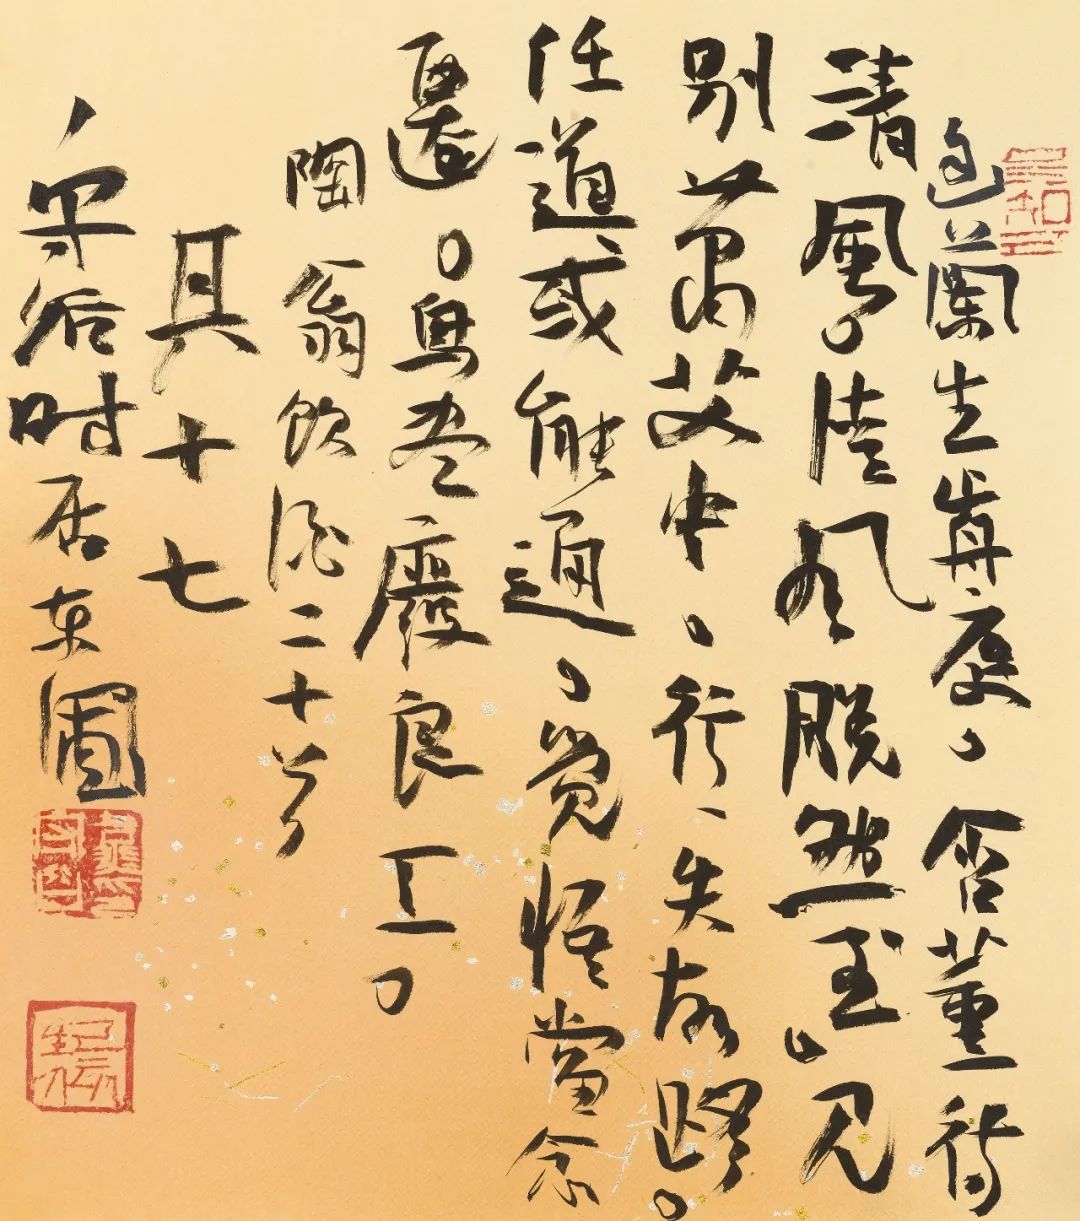 幽蘭生前庭、含薰待
清風。清风脫然至、见
别蕭艾中、行行失故路。
任道或能通、覺悟當念
還。鳥尽廢良弓。
陶翁飲酒二十首
其十七
时居东園